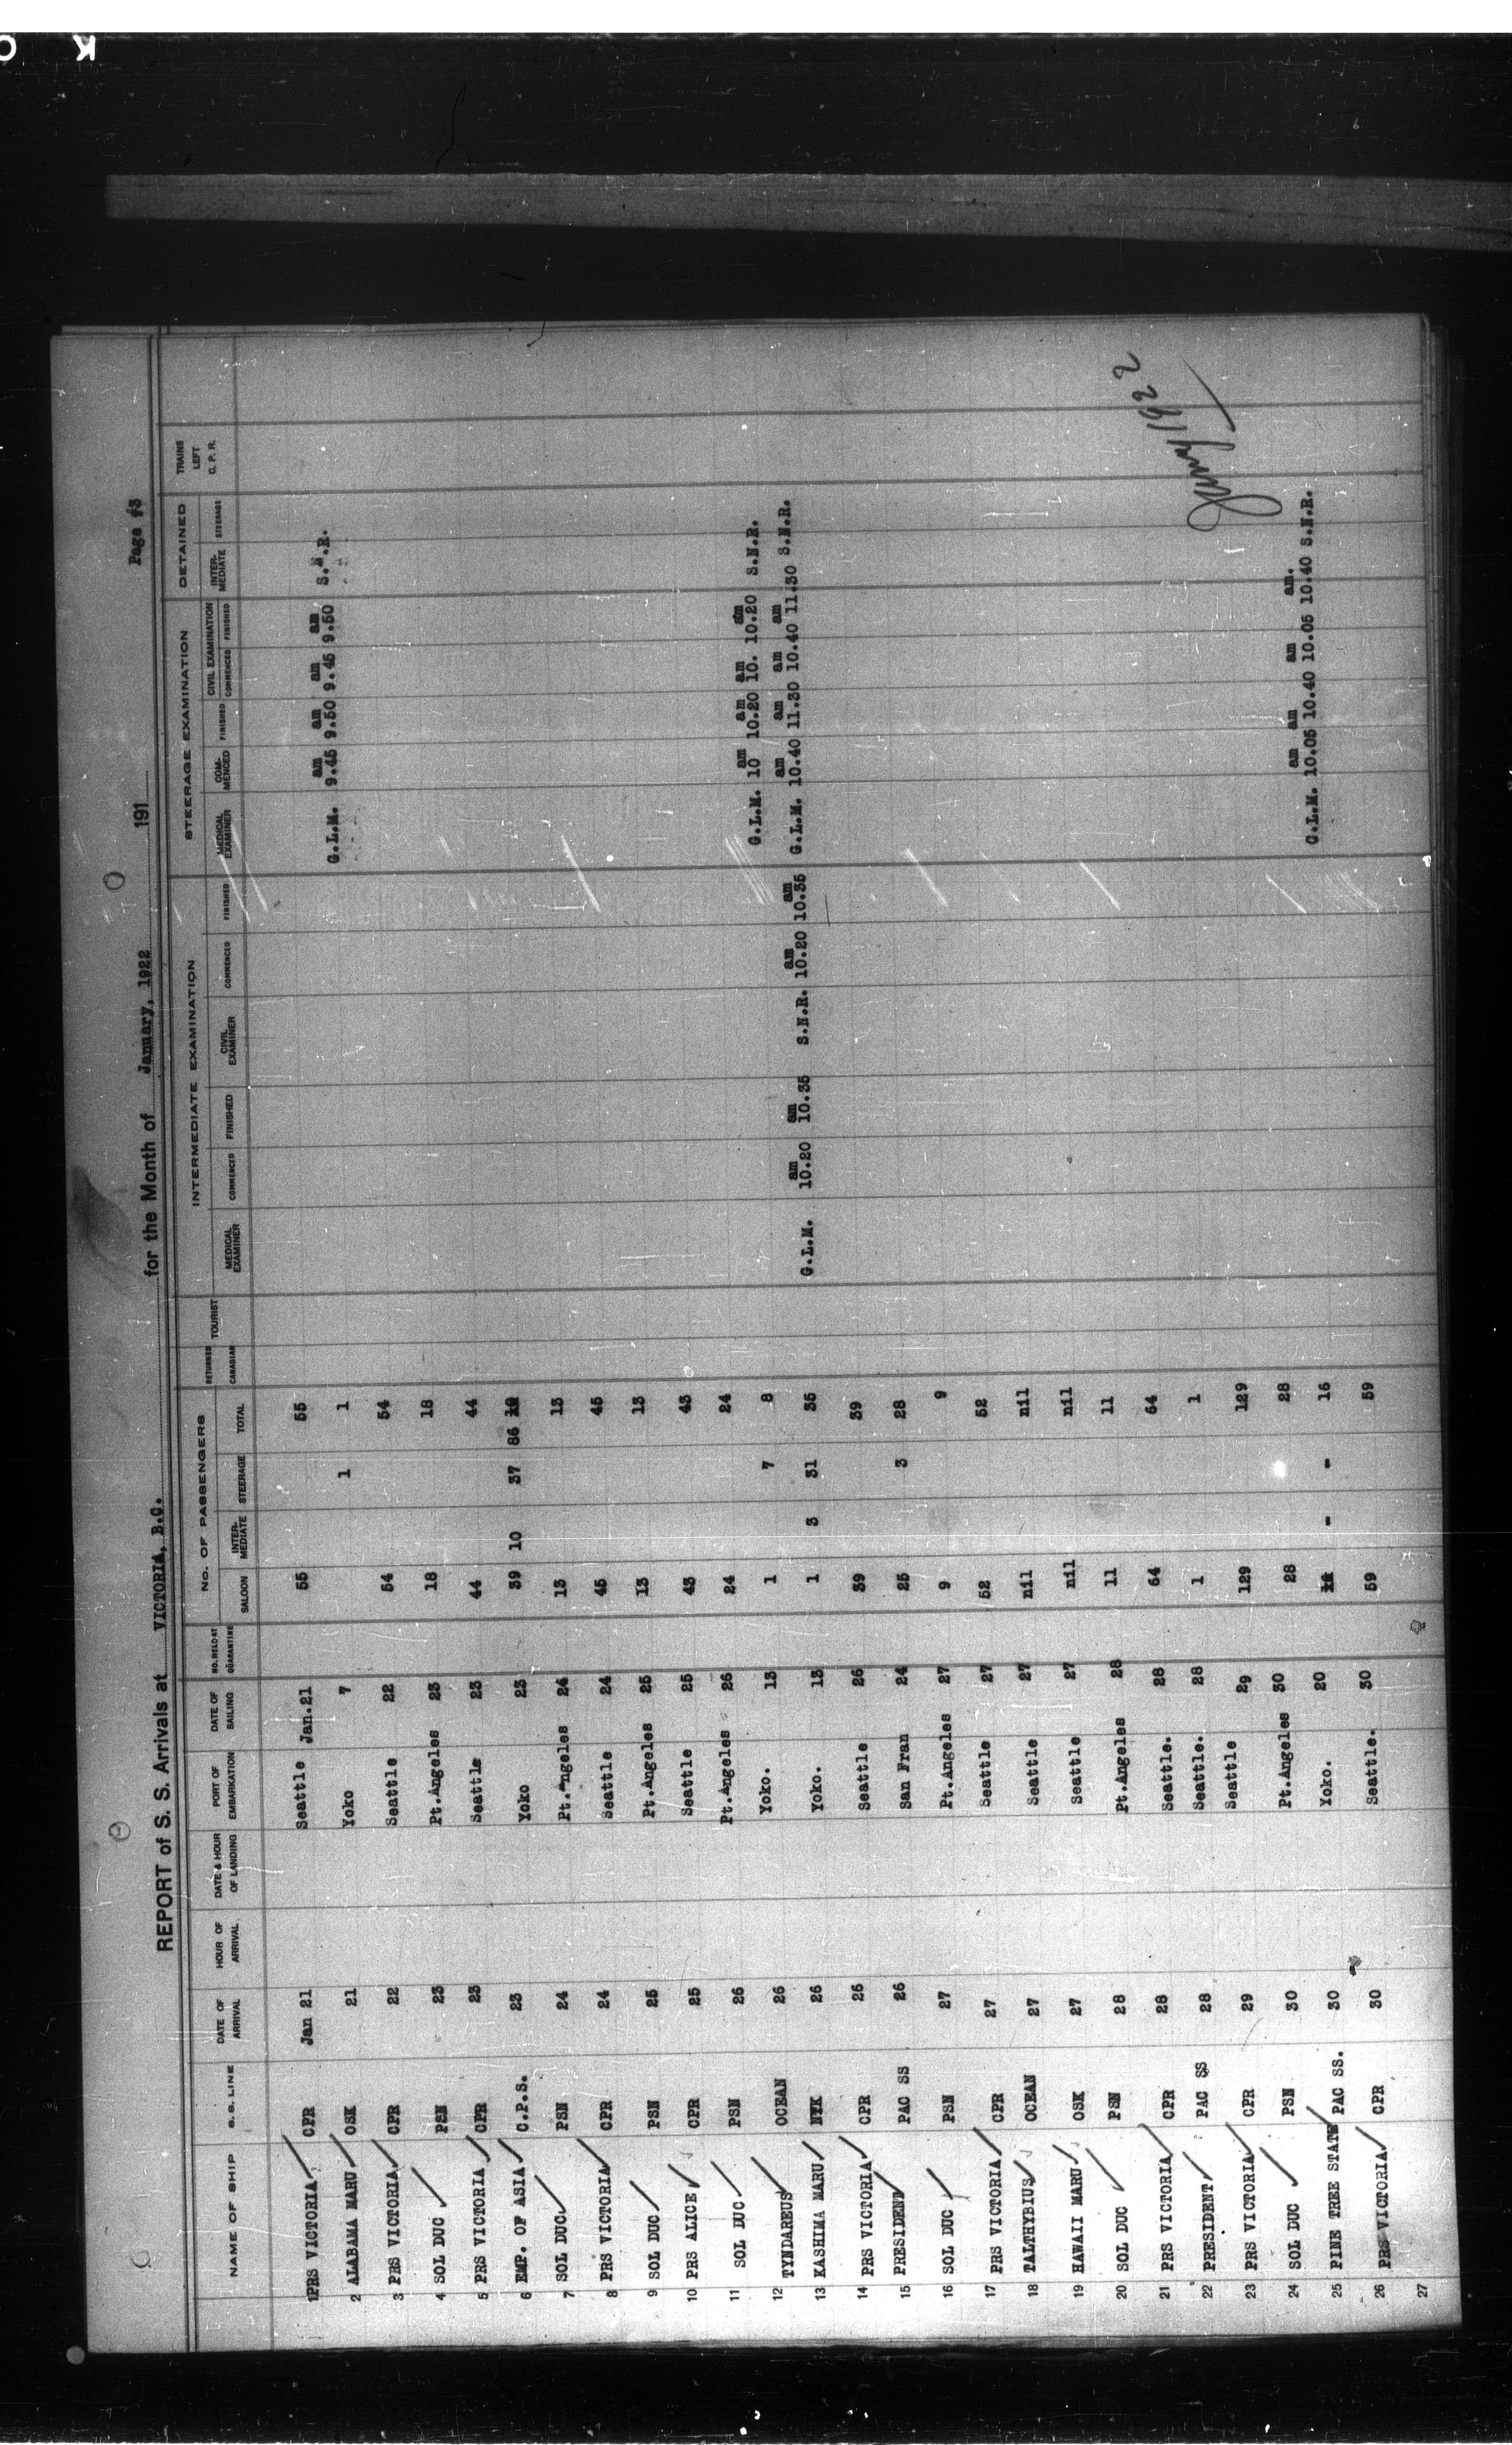 Page #3
REPORT of S. S. Arrivals at VICTORIA, B.C. for the Month of January, 1922 191
NAME OF SHIP S.S. LINE DATE OF ARRIVAL HOUR OF ARRIVAL DATE & HOUR OF LANDING PORT OF EMBARKATION DATE OF SAILING NO. HELD AT QUARANTINE NO. OF PASSENGERS SALOON INTER-MEDIATE STEERAGE TOTAL RETURNED CANADIAN TOURIST INTERMEDIATE EXAMINATION MEDICAL EXAMINER COMMENCED FINISHED CIVIL EXAMINER COMMENCED FINISHED STEERAGE EXAMINATION MEDICAL EXAMINER COM-MENCED FINISHED CIVIL EXAMINATION COMMENCED FINISHED DETAINED INTER-MEDIATE STEERAGE TRAINS LEFT C. P. R.
1 PRS VICTORIA CPR Jan 21 Seattle Jan.21 55 55
2 ALABAMA MARU OSK 21 Yoko 7 1 1 G.L.M. 9.45 am 9.50 am 9.45 am 9.50 am S.N.R.
3 PRS VICTORIA CPR 22 Seattle 22 54 54
4 SOL DUC PSN 23 Pt.Angeles 23 18 18
5 PRS VICTORIA CPR 23 Seattle 23 44 44
6 EMP. OF ASIA C.P.S. 23 Yoko 23 39 10 37 86
7 SOL DUC PSN 24 Pt.Angeles 24 13 13
8 PRS VICTORIA CPR 24 Seattle 24 45 45
9 SOL DUC PSN 25 Pt.Angeles 25 13 13
10 PRS ALICE CPR 25 Seattle 25 43 43
11 SOL DUC PSN 26 Pt.Angeles 26 24 24
12 TYNDAREUS OCEAN 26 Yoko. 13 1 7 8 G.L.M. 10 am 10.20 am 10. am 10.20 am S.N.R.
13 KASHIMA MARU NYK 26 Yoko. 13 1 3 31 35 G.L.M. 10.20 am 10.35 am S.N.R. 10.20 am 10.35 am G.L.M. 10.40 am 11.30 am 10.40 am 11.30 am S.N.R.
14 PRS VICTORIA CPR 26 Seattle 26 39 39
15 PRESIDENT PAC SS 26 San Fran 24 25 3 28
16 SOL DUC PSN 27 Pt.Angeles 27 9 9
17 PRS VICTORIA CPR 27 Seattle 27 52 52
18 TALTHYBIUS OCEAN 27 Seattle 27 nil nil
19 HAWAII MARU OSK 27 Seattle 27 nil nil
20 SOL DUC PSN 28 Pt.Angeles 28 11 11
21 PRS VICTORIA CPR 28 Seattle. 28 64 64
22 PRESIDENT PAC SS 28 Seattle. 28 1 1
23 PRS VICTORIA CPR 29 Seattle 29 129 129
24 SOL DUC PSN 30 Pt.Angeles 30 28 28
25 PINE TREE STATE PAC SS. 30 Yoko. 20 - - 16 G.L.M. 10.05 am 10.40 am 10.05 am 10.40 am. S.N.R.
26 PRS VICTORIA CPR 30 Seattle. 30 59 59
27
1922